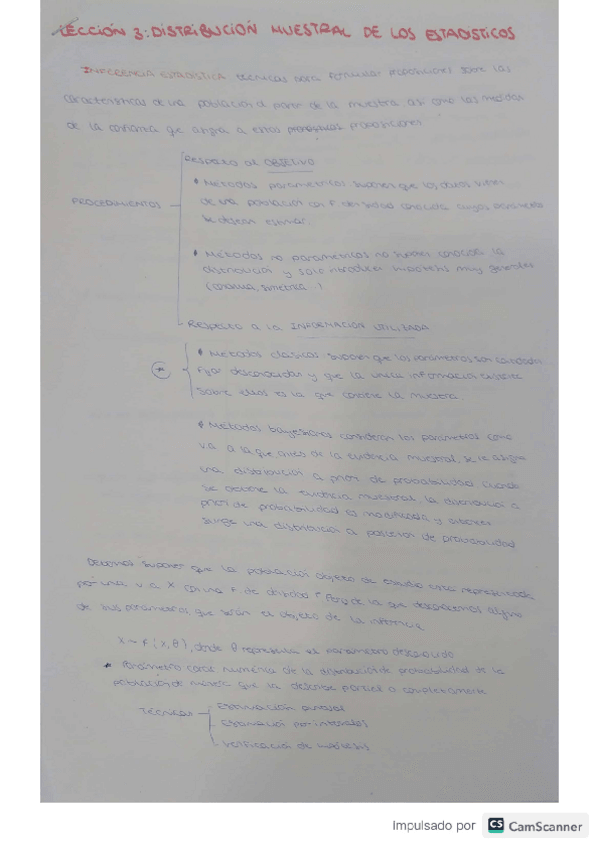 LECCIÓN 3: DISTRIBUCIÓN MUESTRAL DE LOS ESTADÍSTICOS
INFERENCIA ESTADÍSTICA técnicas para formular proposiciones sobre las
características de una población a partir de la muestra así como las medidas
de la confianza que asigna a estas proposiciones
Respecto al OBJETIVO
• Métodos paramétricos suponen que los datos vienen
PROCEDIMIENTOS
de una población con f. densidad conocida cuyos parámetros
se desean estimar.
• Métodos no paramétricos no suponen conocida la
distribución y solo introducen hipótesis muy generales
(continua, simétrica..)
Respecto a la INFORMACIÓN UTILIZADA
• Métodos clásicos suponen que los parámetros son cantidades
fijas desconocidas y que la única información existente
sobre ellos es la que contiene la muestra.
• Métodos bayesianos consideran los parámetros como
v.a. a la que antes de la evidencia muestral, se le asigna
una distribución a priori de probabilidad. Cuando
se obtiene la evidencia muestral la distribución a
priori de probabilidad es modificada y
surge una distribución a posteriori de probabilidad
suponer que la población objeto de estudio está representada
por una v.a X con una f. de densidad f de la que desconocemos alguno
de sus parámetros que serán el objeto de la inferencia
X ~ f(x,θ), donde θ representa el parámetro desconocido
* Parámetro caract numérica de la distribución de probabilidad de la
población de manera que la describe parcial o completamente
Técnicas
Estimación puntual
Estimación por intervalos
Verificación de hipótesis
Impulsado por CS CamScanner